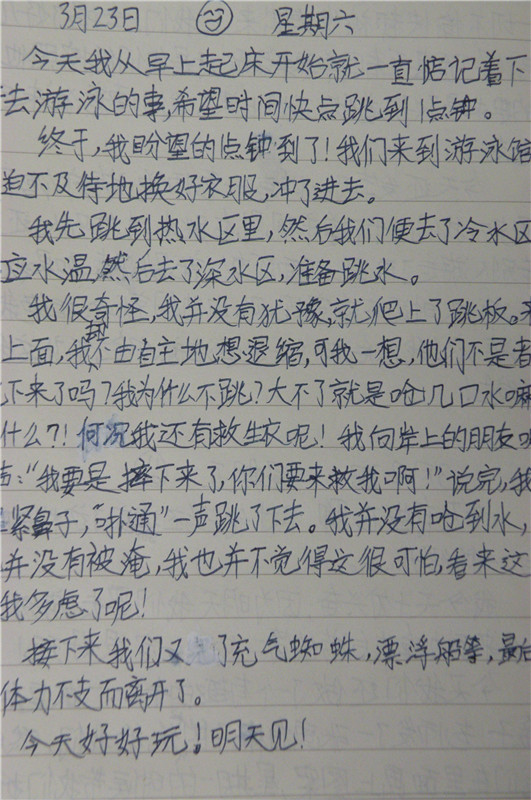 3月23日 星期六
今天我从早上起床开始就一直惦记着下
去游泳的事,希望时间快点跳到1点钟。
终于,我盼望的1点钟到了!我们来到游泳馆
迫不及待地换好衣服,冲了进去。
我先跳到热水区里,然后我们便去了冷水区
应水温,然后去了深水区,准备跳水。
我很奇怪,我并没有犹豫,就爬上了跳板。
上面,我我不由自主地想退缩,可我一想,他们不是都
下来了吗?我为什么不跳?大不了就是呛几口水嘛
什么?!何况我还有救生衣呢!我向岸上的朋友
声:“我要是摔下来了,你们要来救我啊!”说完,我
紧鼻子,“扑通”一声跳了下去。我并没有呛到水,
并没有被淹,我也并不觉得这很可怕,看来这
我多虑了呢!
接下来我们又 了充气蜘蛛,漂浮船等,最后
体力不支而离开了。
今天好好玩!明天见!